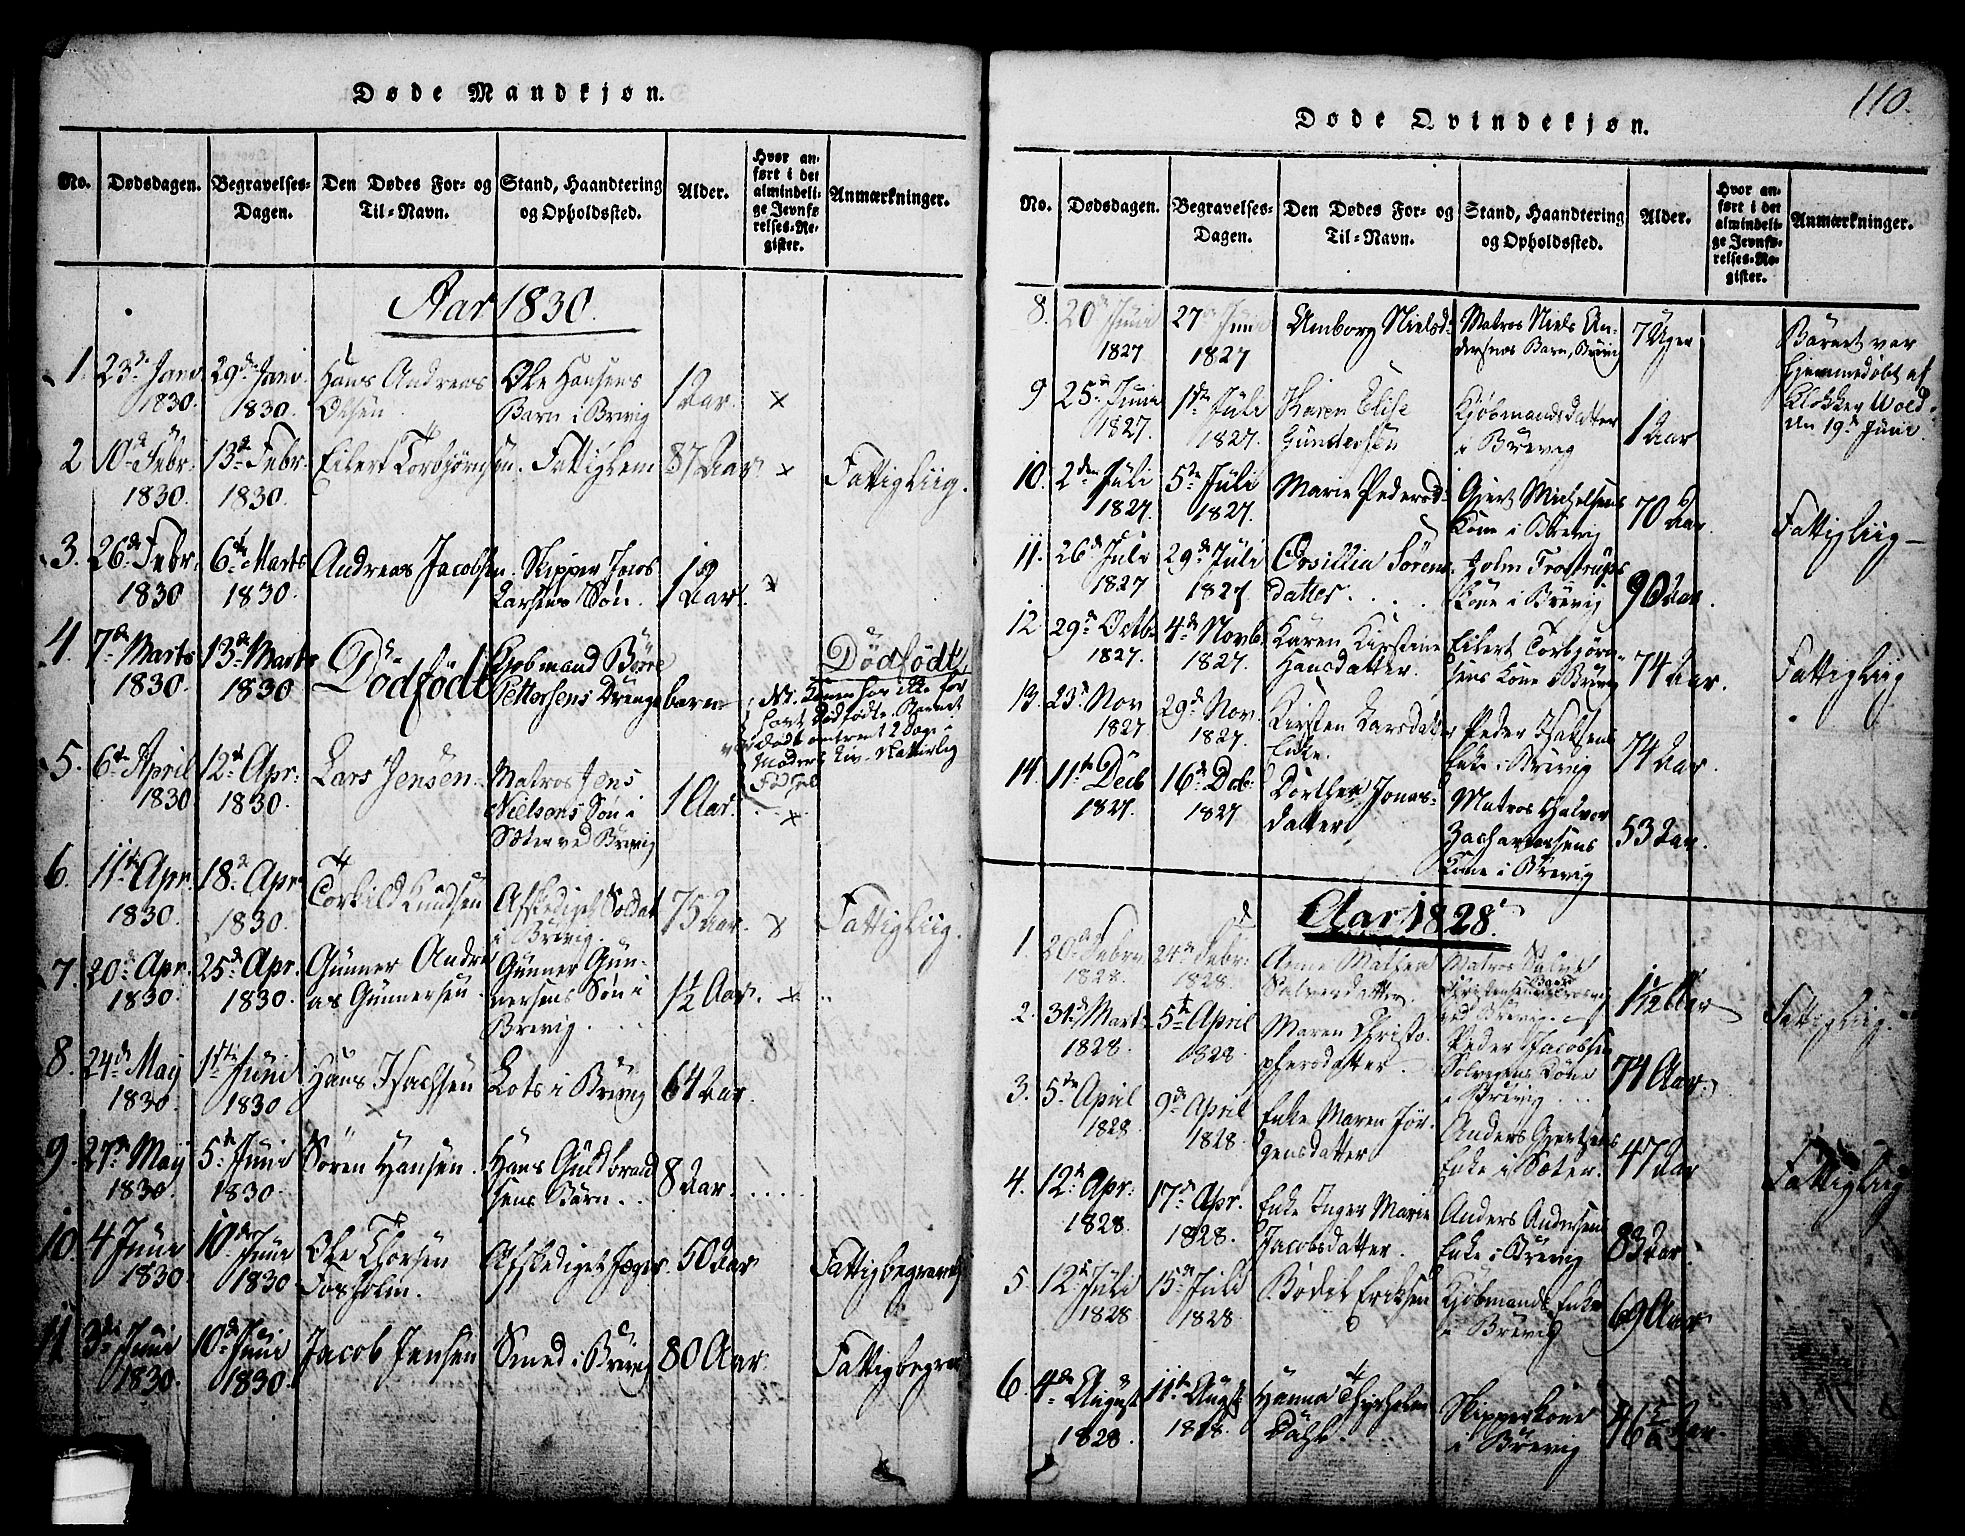 Døde Mandkjøn.
No.
Dødsdagen.
Begravelses-
Dagen.
Den Dødes For- og
Til-Navn.
Stand, Haandtering
og Opholdssted.
Alder.
Hvor an-
ført i det
almindeli-
ge Jevnfø-
relses-Re-
gister.
Anmærkninger.
Aar 1830.
1. 23de Janv. 29de Janv. Hans Andreas Ole Hansens 1 Aar. ×
1830. 1830. Olsen. Barn i Brevig
2 10de Febr. 13de Febr. Eilert Torbjørnsen. Fattiglem 87 Aar. × Fattigliig.
1830. 1830.
3. 26de Febr. 6te Marts Andreas Jacobsen. Skipper Jacob 1 Aar. ×
1830 1830. Larsens Søn.
4. 7de Marts 13de Marts Dödfödt Kjøbmand Börre Dödfödt
1830. 1830 Pettersens Drengebarn
5. 6te April 12te Apr. Lars Jensen. Matros Jens 1 Aar. ×
1830 1830. Nielsens Søn i
Sæter ved Brevig
6. 11te Apr. 18de Apr. Torkild Knudsen Afskediget Soldat 75 Aar. × Fattigliig.
1830. 1830. i Brevig.
7. 20de Apr. 25de Apr. Gunner Andre- Gunner Gun- 1½ Aar. ×
1830. 1830. as Gunnersen. nersens Søn i
Brevig.
8. 24de May 1ste Juni Hans Isachsen Lots i Brevig 64 Aar.
1830. 1830 ×
9. 27de May 5te Juni Sören Hansen. Hans Guldbrand- 8 Aar.
1830. 1830. sens Barn.
10. 4 Juni 10de Juni Ole Thorsen Afskediget Jæger. 50 Aar Fattigbegravels
1830. 1830 Fosholm.
11 3de Juni 10de Juni Jacob Jensen Smed i Brevig 80 Aar. Fattigbegrav
1830. 1830.
110.
Døde Qvindekjøn.
No.
Dødsdagen.
Begravelses-
Dagen.
Den Dødes For- og
Til-Navn.
Stand, Haandtering
og Opholdssted.
Alder.
Hvor an-
ført i det
almindeli-
ge Jevnfø-
relses-Re-
gister.
Anmærkninger.
8. 20de Juni 27de Juni Amborg Nielsd. Matros Niels An- 7 Uger Barnet var
1827 1827 dersens Barn, Brevig hjemmedøbt af
9 25de Juni 1ste Juli Karen Elise Kjøbmandsdatter 1 Aar Klokker Wold
1827. 1827. Gundersen i Brevig den 19de Juni
10. 2den Juli 5te Juli Marie Pedersd. Gjert Michelsens 70 Aar. Fattigliig
1827. 1827. Kone i Brevig
11. 26de Juli 29de Juli Orsillia Sörens- Holm Frostrups 90 Aar.
1827 1827 datter. Kone i Brevig
12. 29de Octbr. 4de Novbr. Karen Kirstine Eilert Torbjørn- 74 Aar. Fattigliig
1827. 1827. Hansdatter. sens Kone i Brevig
13. 23de Nov 29de Nov. Kirsten Larsdatter Peder Isaksens 74 Aar.
1827 1827. Enke. Enke i Brevig
14. 11te Decb 16de Deb. Dorthea Jonas- Matros Halvor 53 Aar.
1827. 1827 datter Zachariassens
Kone i Brevig
Aar 1828.
1. 20de Febr. 24de Febr. Anne Mathea Matros Salve
1828. 1828. Salvesdatter.
2. 31de Marts 5te April Maren Christo- Peder Jacobsen 74 Aar. Fattigliig.
1828. 1828 phersdatter. Kone
i Brevig
3. 5te April 9de April Enke Maren Jör- Anders Gjertsens 47 Aar Fattigliig
1828 1828. gensdatter Enke i Sæter.
4. 12te Apr. 17de Apr. Enke Inger Marie Anders Andersens 83 Aar.
1828. 1828. Jacobsdatter. Enke i Brevig
5. 12te Juli 15de Juli Bodil Eriksen Kjøbmands Enke 69 Aar
1828 1828. i Brevig
6. 4de August 11te Augst Hanna Thyrholm Skipperkone
1828. 1828. Dahl. i Brevig